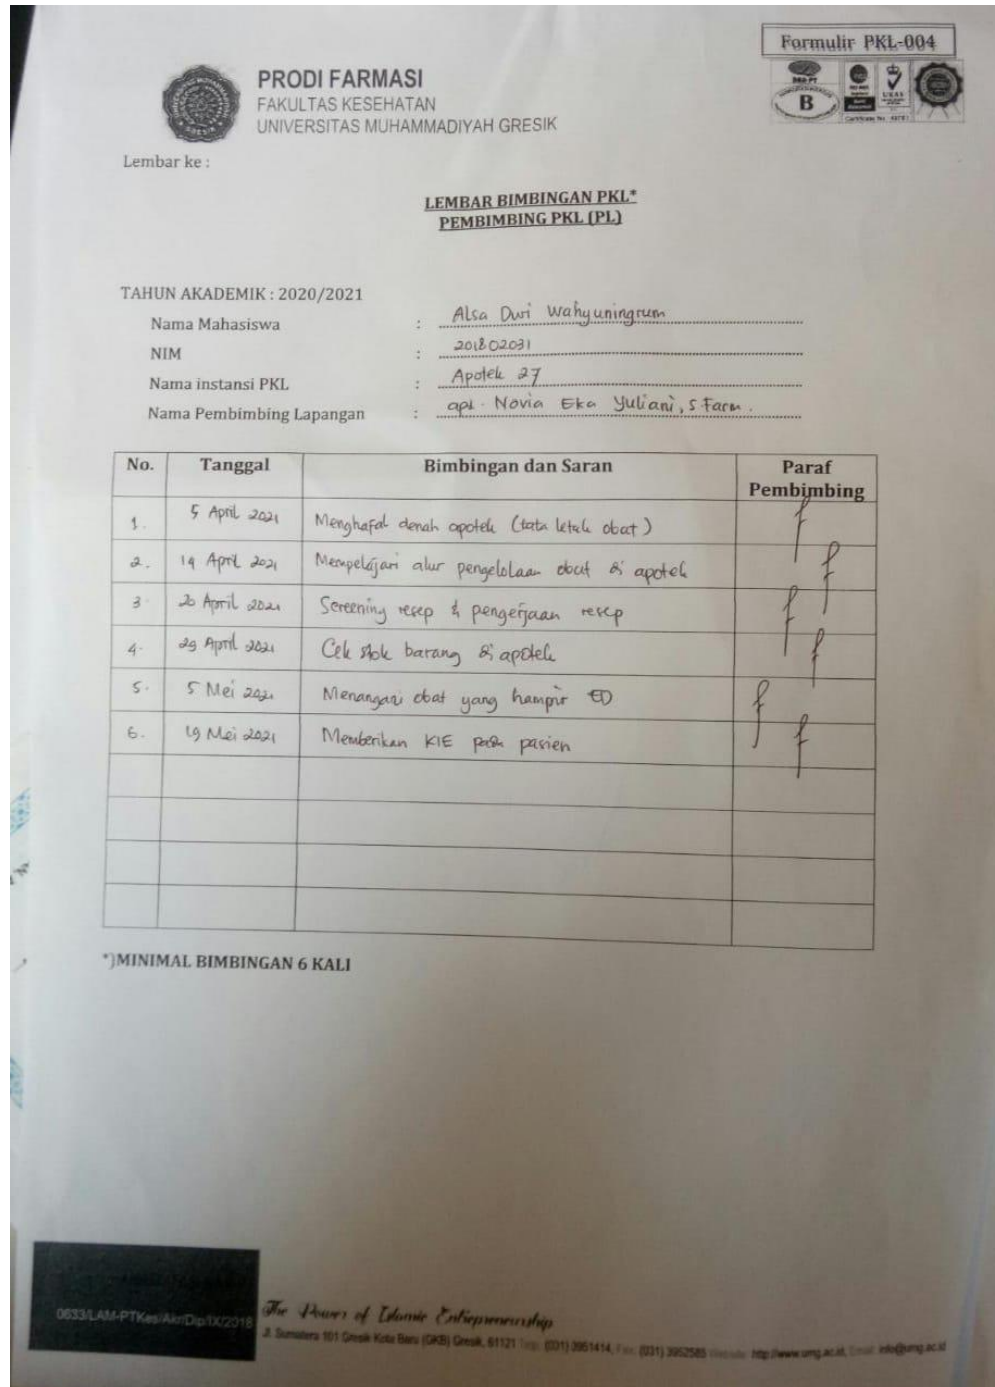 Formulir PKL-004
PRODI FARMASI
FAKULTAS KESEHATAN
UNIVERSITAS MUHAMMADIYAH GRESIK
B
Lembar ke :
LEMBAR BIMBINGAN PKL*
PEMBIMBING PKL (PL)
TAHUN AKADEMIK : 2020/2021
Nama Mahasiswa : Alsa Dwi Wahyuningrum
NIM : 201802031
Nama instansi PKL : Apotek 27
Nama Pembimbing Lapangan : apt. Novia Eka Yuliani, S Farm.
No. Tanggal Bimbingan dan Saran Paraf Pembimbing
1. 5 April 2021 Menghafal denah apotek (tata letak obat)
2. 14 April 2021 Mempelajari alur pengelolaan obat di apotek
3. 20 April 2021 Screening resep & pengerjaan resep
4. 29 April 2021 Cek stok barang di apotek
5. 5 Mei 2021 Menangani obat yang hampir ED
6. 19 Mei 2021 Memberikan KIE pada pasien
*)MINIMAL BIMBINGAN 6 KALI
0633/LAM-PTKes/Akr/Dip/IX/2018
The Power of Islamic Entrepreneurship
Jl. Sumatera 101 Gresik Kota Baru (GKB) Gresik, 61121 Telp. (031) 3951414, Fax. (031) 3952585 Website: http://www.umg.ac.id, Email: info@umg.ac.id